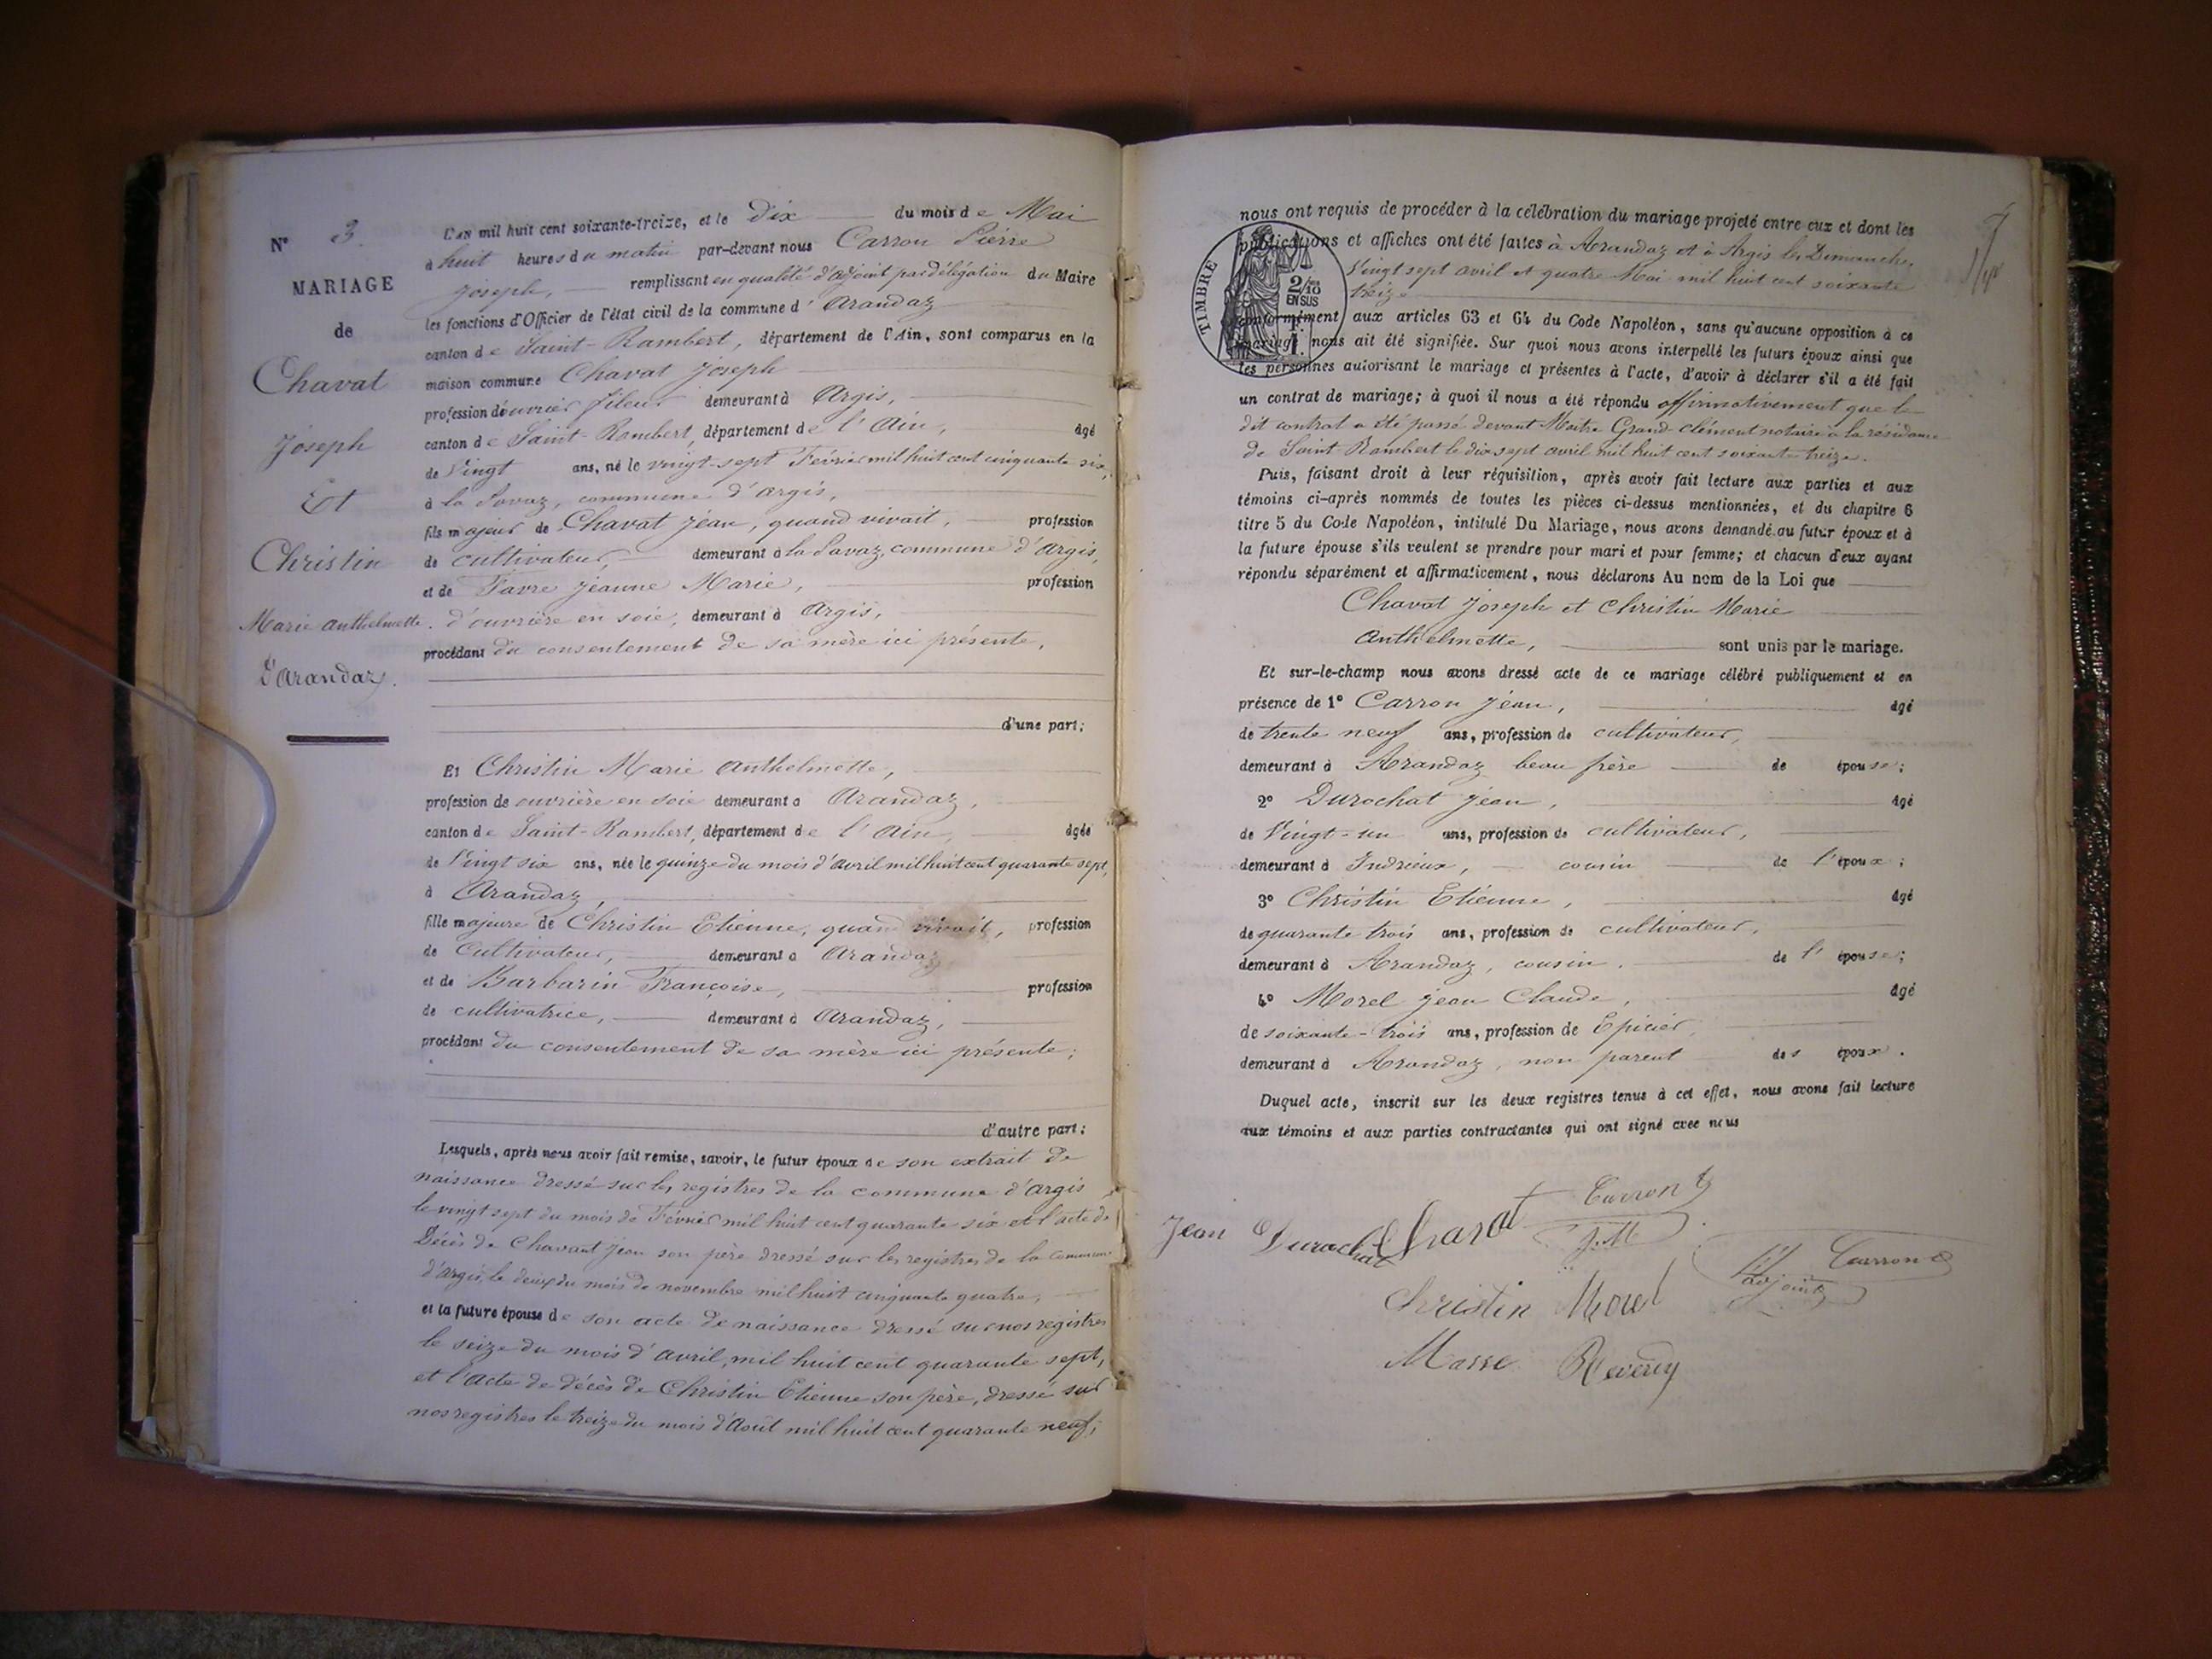 N° 3.
MARIAGE
de
Chavat
Joseph
Et
Christin
Marie Anthelmette.
d'Arandaz.
L'AN mil huit cent soixante-treize, et le Dix du mois de Mai
à huit heures du matin par-devant nous Carron Pierre
Joseph, remplissant en qualité d'adjoint par délégation du Maire
les fonctions d'Officier de l'état civil de la commune d'Arandaz
canton de Saint-Rambert, département de l'Ain, sont comparus en la
maison commune Chavat Joseph
profession d'ouvrier fileur demeurant à Argis,
canton de Saint-Rambert, département de l'Ain, âgé
de Vingt ans, né le vingt-sept Février mil huit cent cinquante six,
à la Savaz, commune d'Argis,
fils majeur de Chavat Jean, quand vivait, profession
de cultivateur, demeurant à la Savaz, commune d'Argis,
et de Favre Jeanne Marie, profession
d'ouvrière en soie, demeurant à Argis,
procédant du consentement de sa mère ici présente,
d'une part;
Et Christin Marie Anthelmette,
profession de ouvrière en soie demeurant à Arandaz,
canton de Saint-Rambert, département de l'Ain, âgée
de Vingt six ans, née le quinze du mois d'avril mil huit cent quarante sept,
à Arandaz,
fille majeure de Christin Etienne, quand vivait, profession
de Cultivateur, demeurant à Arandaz
et de Barbarin Françoise, profession
de cultivatrice, demeurant à Arandaz,
procédant du consentement de sa mère ici présente;
d'autre part;
Lesquels, après nous avoir fait remise, savoir, le futur époux de son extrait de
naissance dressé sur les registres de la commune d'Argis
le vingt sept du mois de Février mil huit cent quarante six et l'acte de
Décès de Chavant Jean son père dressé sur les registres de la Commune
d'Argis, le deux du mois de novembre mil huit cinquante quatre,
et la future épouse de son acte de naissance dressé sur nos registres
le seize du mois d'Avril, mil huit cent quarante sept,
et l'acte de décès de Christin Etienne son père, dressé sur
nos registres le treize du mois d'Août mil huit cent quarante neuf;
nous ont requis de procéder à la célébration du mariage projeté entre eux et dont les
publications et affiches ont été faites à Arandaz et à Argis les Dimanches,
Vingt sept avril et quatre Mai mil huit cent soixante
treize
TIMBRE
2/10
EN SUS
conformément aux articles 63 et 64 du Code Napoléon, sans qu'aucune opposition à ce
mariage nous ait été signifiée. Sur quoi nous avons interpellé les futurs époux ainsi que
les personnes autorisant le mariage et présentes à l'acte, d'avoir à déclarer s'il a été fait
un contrat de mariage; à quoi il nous a été répondu affirmativement que le
dit contrat a été passé devant Maître Grand-clément notaire à la résidence
de Saint-Rambert le dix sept avril mil huit cent soixante treize.
Puis, faisant droit à leur réquisition, après avoir fait lecture aux parties et aux
témoins ci-après nommés de toutes les pièces ci-dessus mentionnées, et du chapitre 6
titre 5 du Code Napoléon, intitulé Du Mariage, nous avons demandé au futur époux et à
la future épouse s'ils veulent se prendre pour mari et pour femme; et chacun d'eux ayant
répondu séparément et affirmativement, nous déclarons Au nom de la Loi que
Chavat Joseph et Christin Marie
Anthelmette, sont unis par le mariage.
Et sur-le-champ nous avons dressé acte de ce mariage célébré publiquement et en
présence de 1° Carron Jean, âgé
de trente neuf ans, profession de cultivateur,
demeurant à Arandaz beau frère de épouse;
2° Durochat Jean, âgé
de Vingt-un ans, profession de cultivateur,
demeurant à Indrieux, cousin de l'époux;
3° Christin Etienne, âgé
de quarante trois ans, profession de cultivateur,
demeurant à Arandaz, cousin. de l'épouse;
4° Morel Jean Claude, âgé
de soixante-trois ans, profession de Epicier,
demeurant à Arandaz, non parent des époux.
Duquel acte, inscrit sur les deux registres tenus à cet effet, nous avons fait lecture
aux témoins et aux parties contractantes qui ont signé avec nous
Carron
J. M.
Jean Durochat Chavat
Carron
adjoint
Christin Morel
Masse Reverdy